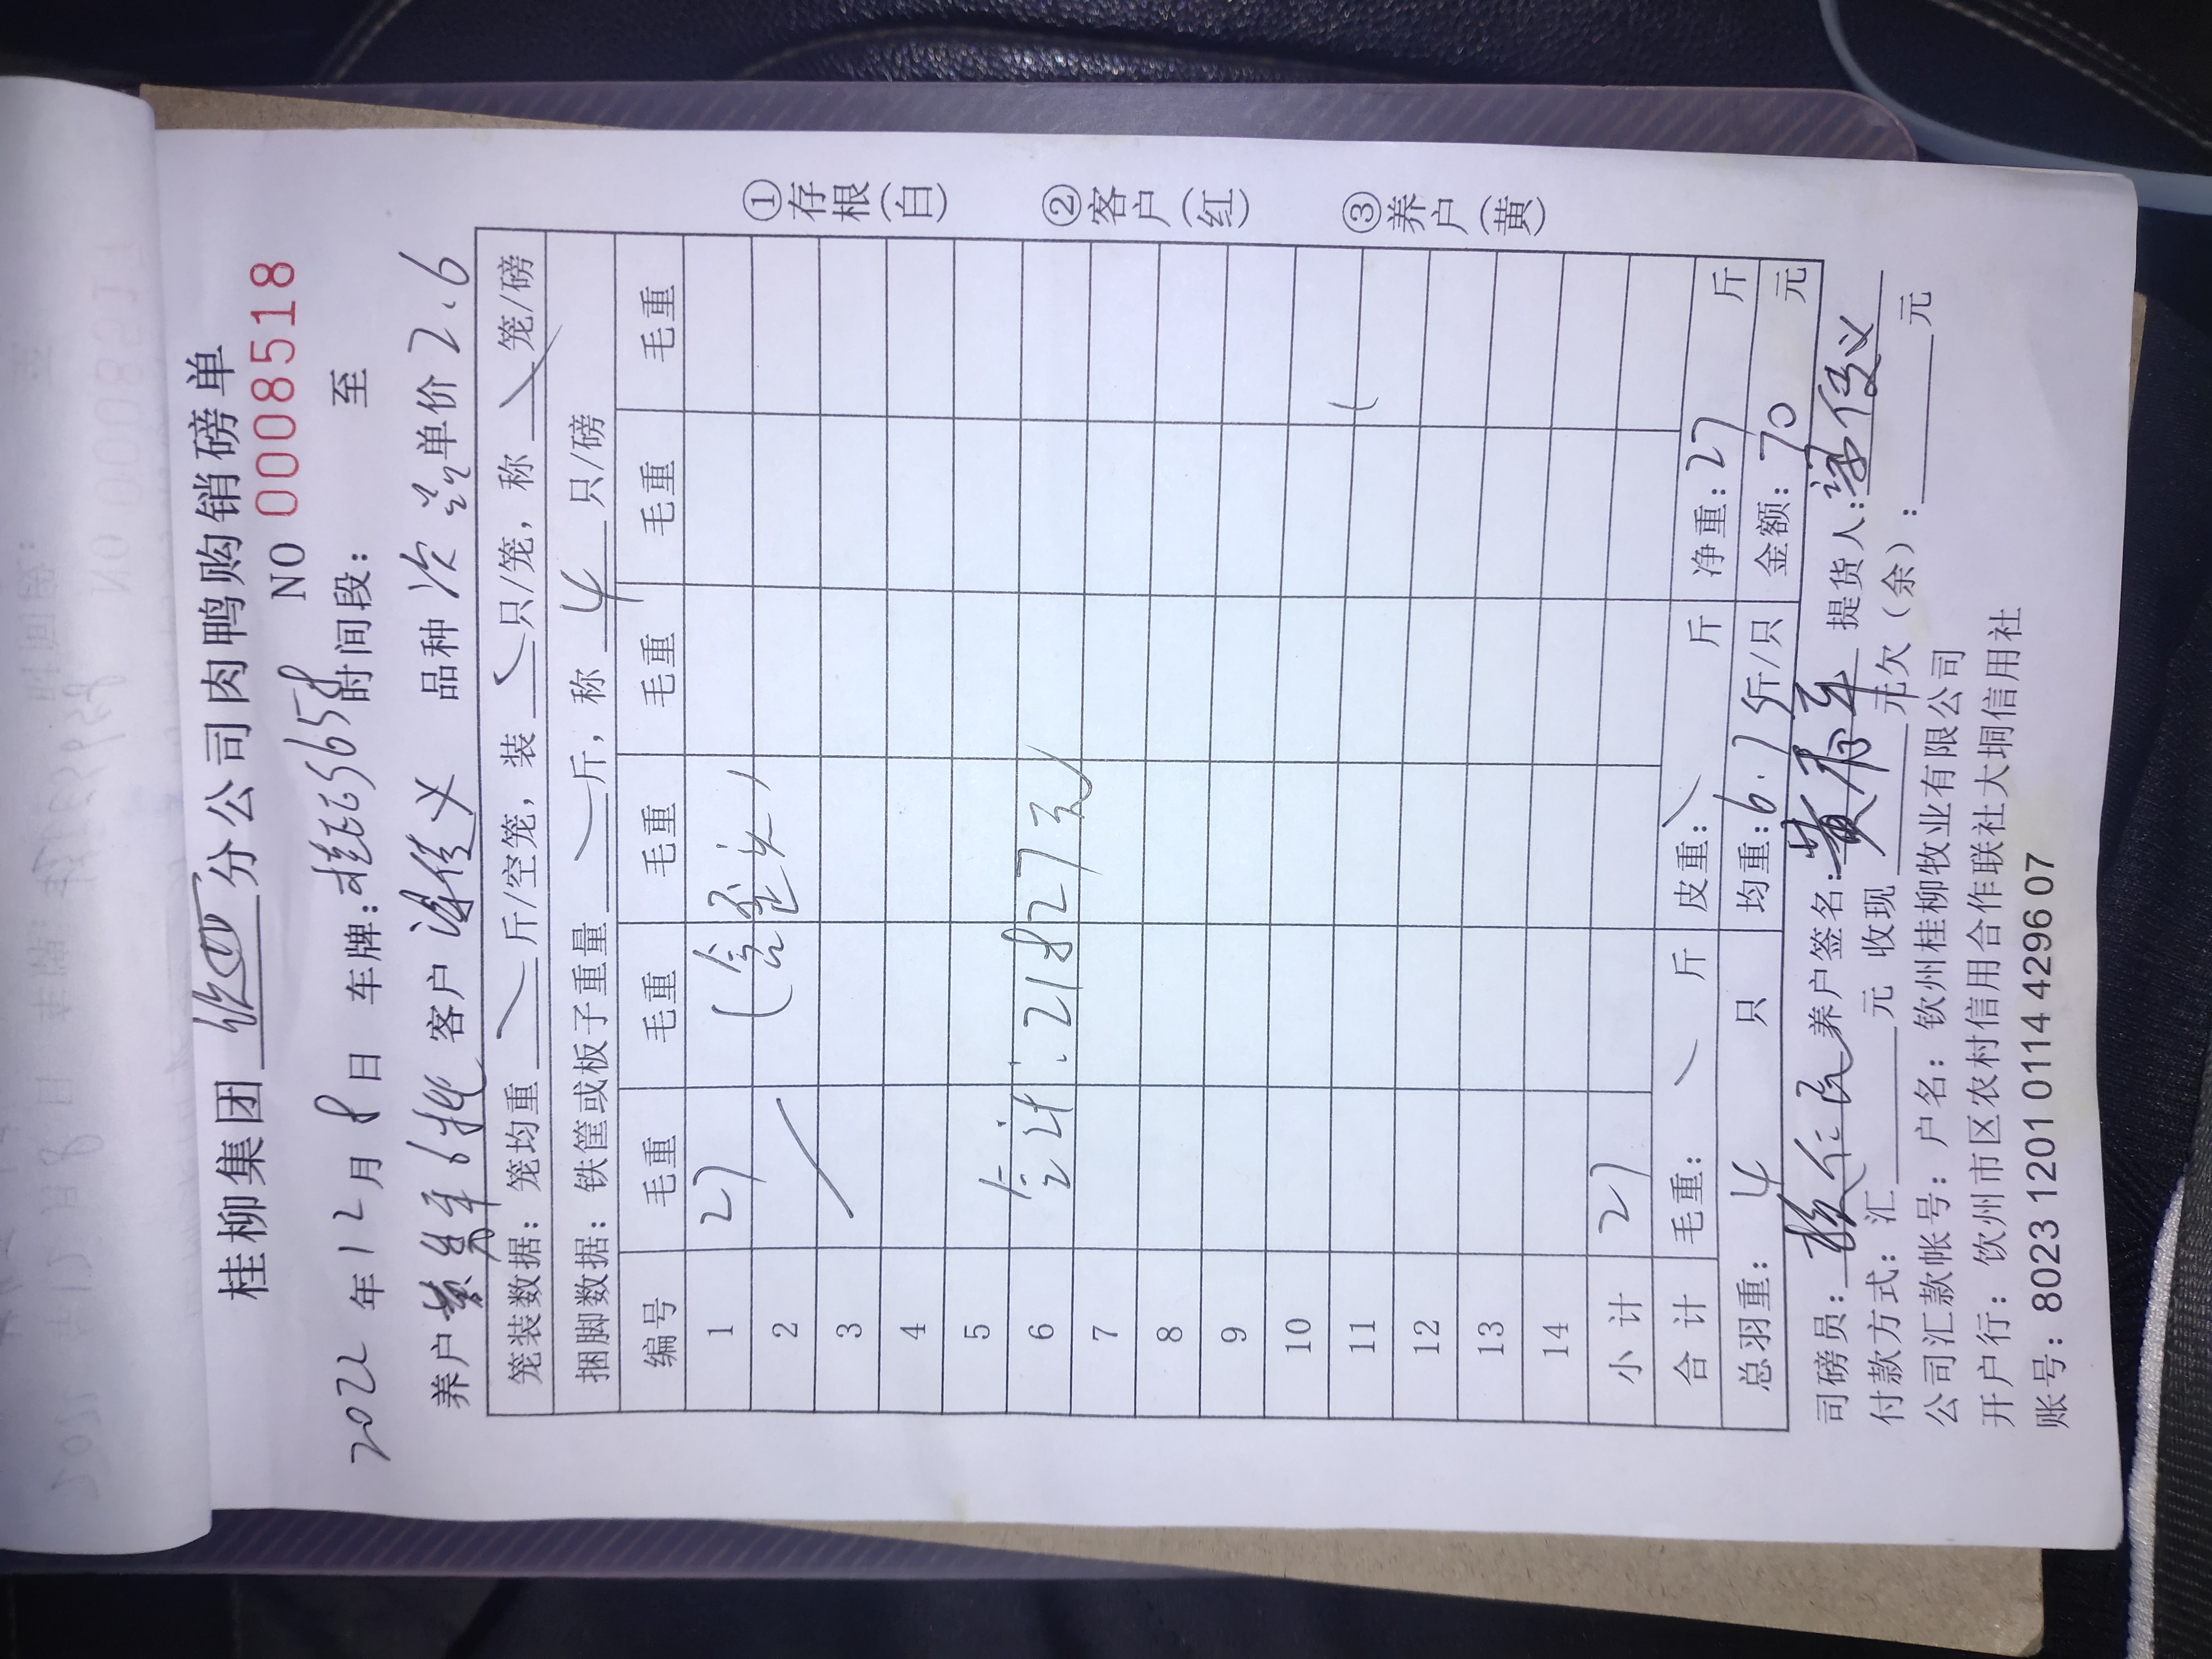 桂柳集团 分公司肉鸭购销磅单
NO 0008518
2022年12月8日 车牌:桂E39658 时间段: 至
养户 黄 6批 客户 义 品种 次 单价 2.6
笼装数据:笼均重 斤/空笼,装 只/笼,称 笼/磅
捆脚数据:铁筐或板子重量 斤,称 4 只/磅
编号 毛重 毛重 毛重 毛重 毛重 毛重
1 27 (含歪头)
2
3
4
5
6 合计:21827元
7
8
9
10
11
12
13
14
小计 27
合计 毛重: 斤 皮重: 斤 净重:27 斤
总羽重: 4 只 均重:6.75斤/只 金额:70 元
司磅员: 养户签名:黄 提货人: 义
付款方式:汇 元 收现 元欠(余): 元
公司汇款帐号:户名:钦州桂柳牧业有限公司
开户行:钦州市区农村信用合作联社大垌信用社
账号:8023 1201 0114 4296 07
①存根(白)
②客户(红)
③养户(黄)